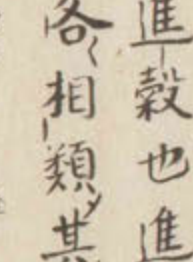 進穀也進
各〱相類其